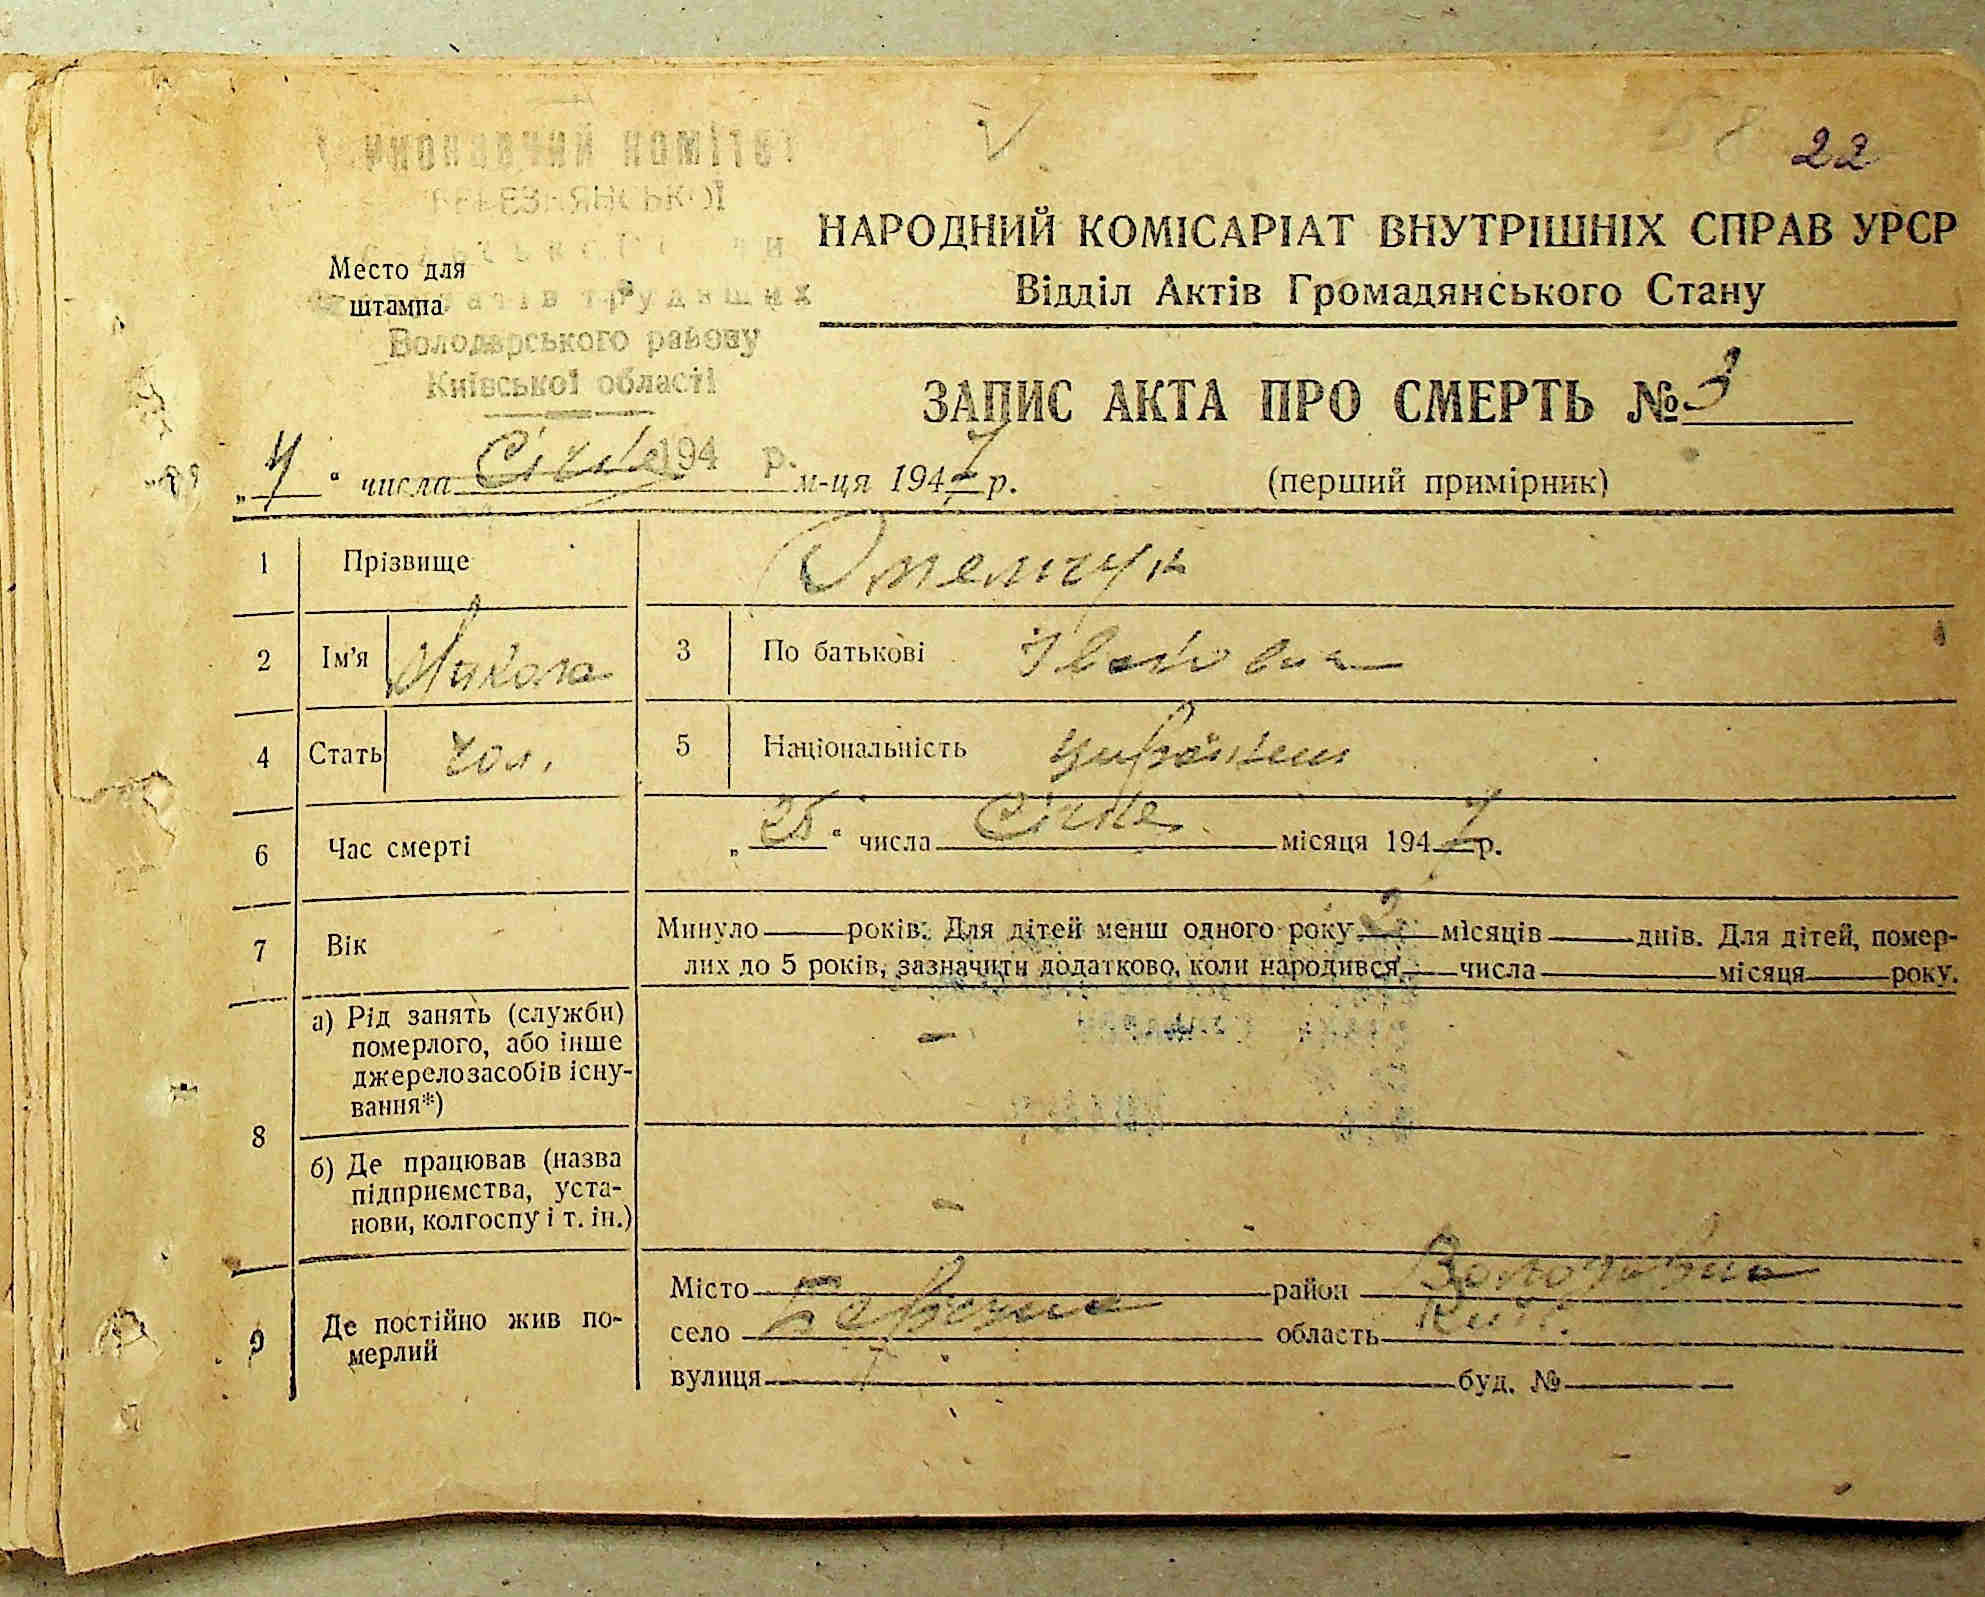 22
комітет
Володарського району
Київської області
194 р.
Место для
штампа
НАРОДНИЙ КОМІСАРІАТ ВНУТРІШНІХ СПРАВ УРСР
Відділ Актів Громадянського Стану
ЗАПИС АКТА ПРО СМЕРТЬ № 3
числа Січня м-ця 1947 р. (перший примірник)
1 Прізвище Омельчук
2 Ім'я Микола 3 По батькові Іванович
4 Стать чол. 5 Національність українець
6 Час смерті „25“ числа Січня місяця 1947 р.
7 Вік Минуло років. Для дітей менш одного року 2 місяців днів. Для дітей, помер-
лих до 5 років, зазначити додатково, коли народився числа місяця року.
8 а) Рід занять (служби)
померлого, або інше
джерело засобів існу-
вання*)
б) Де працював (назва
підприємства, уста-
нови, колгоспу і т. ін.)
9 Де постійно жив по-
мерлий
Місто район
село область Київ.
вулиця буд. №